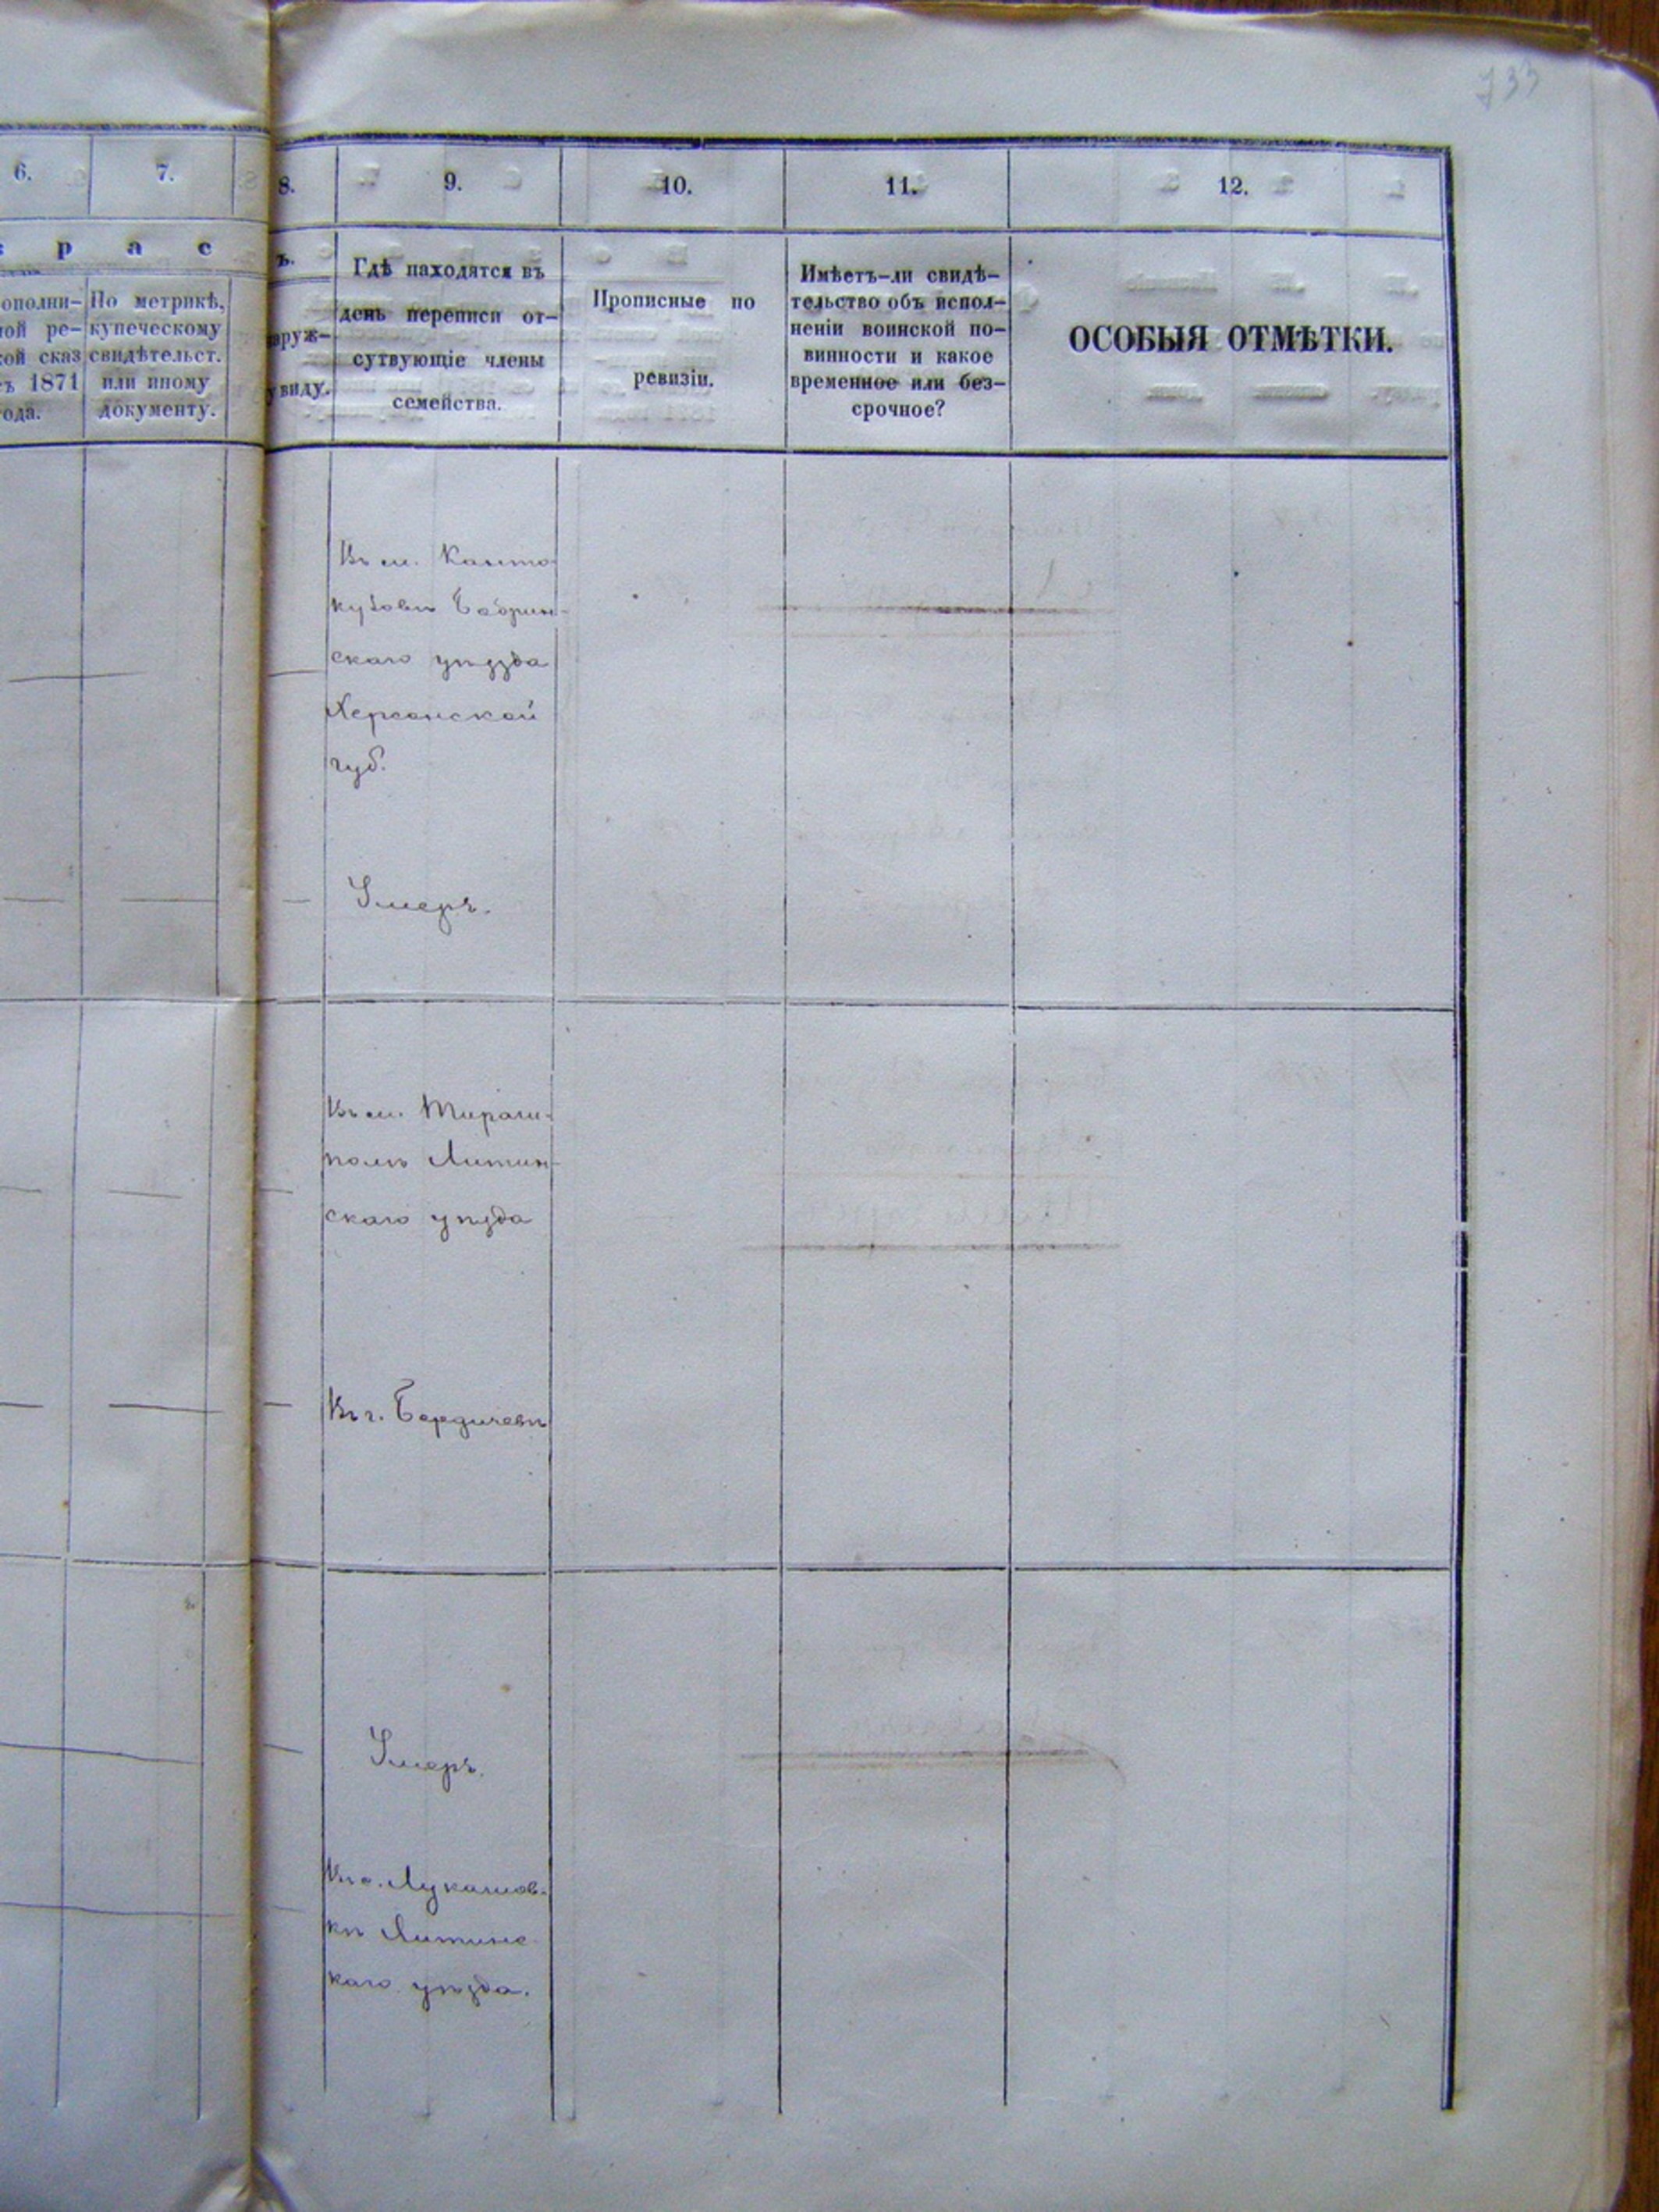 733
6.
7.
8.
9.
10.
11.
12.
р а с
ъ.
ополни-
ой ре-
кой сказ
ъ 1871
ода.
По метрикѣ,
купеческому
свидѣтельст.
или иному
документу.
аруж-
у виду.
Гдѣ находятся въ
день переписи от-
сутвующіе члены
семейства.
Прописные по
ревизіи.
Имѣетъ-ли свидѣ-
тельство объ испол-
неніи воинской по-
винности и какое
временное или без-
срочное?
ОСОБЫЯ ОТМѢТКИ.
Въ м. Канто
кузовѣ Бобрин-
скаго уѣзда
Херсонской
губ.
Умеръ.
Въ м.
Литин-
скаго уѣзда
Въ г. Бердичевѣ
Умеръ.
Въ с. Лукашов-
кѣ Литинс
каго уѣзда.